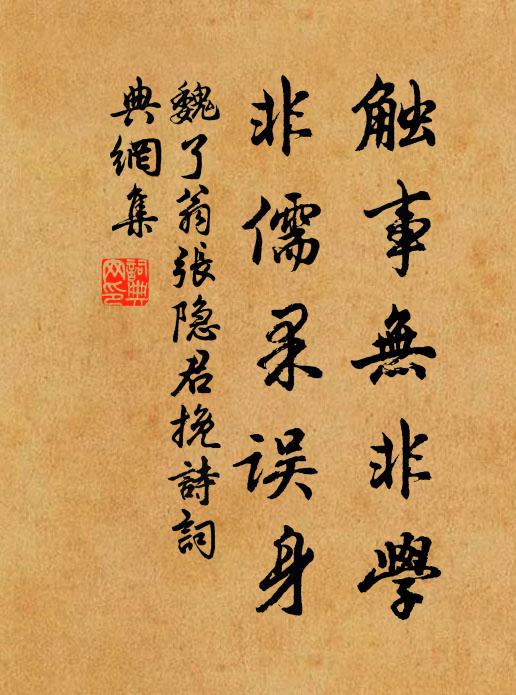 触事無非學
非儒果误身
魏了翁張隐君挽詩詞
典網集
詞典网印